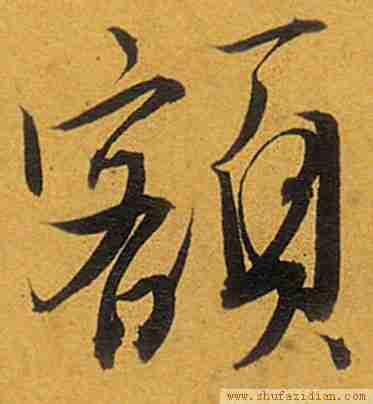 額
www.shufazidian.com